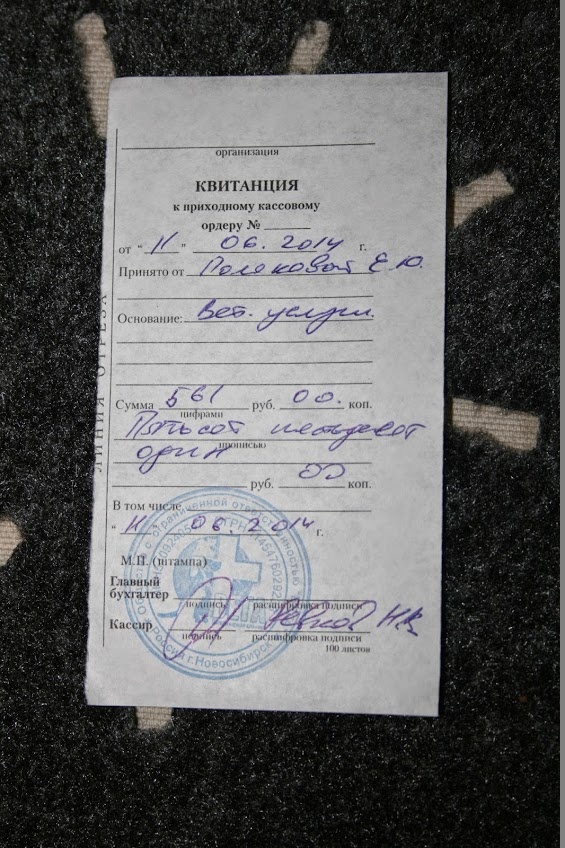 организация
КВИТАНЦИЯ
к приходному кассовому
ордеру №
от " 11 " 06. 2014 г.
Принято от Е.Ю.
Основание: Вет. услуги.
Сумма 561 руб. 00. коп.
цифрами
Пятьсот шестьдесят
прописью
один
руб. 00 коп.
В том числе
" 11 06. 2014 г.
М.П. (штампа)
Главный
бухгалтер
подпись расшифровка подписи
Кассир
подпись расшифровка подписи
100 листов
ЛИНИЯ ОТРЕЗА
с ограниченной ответственностью
Россия г.Новосибирск